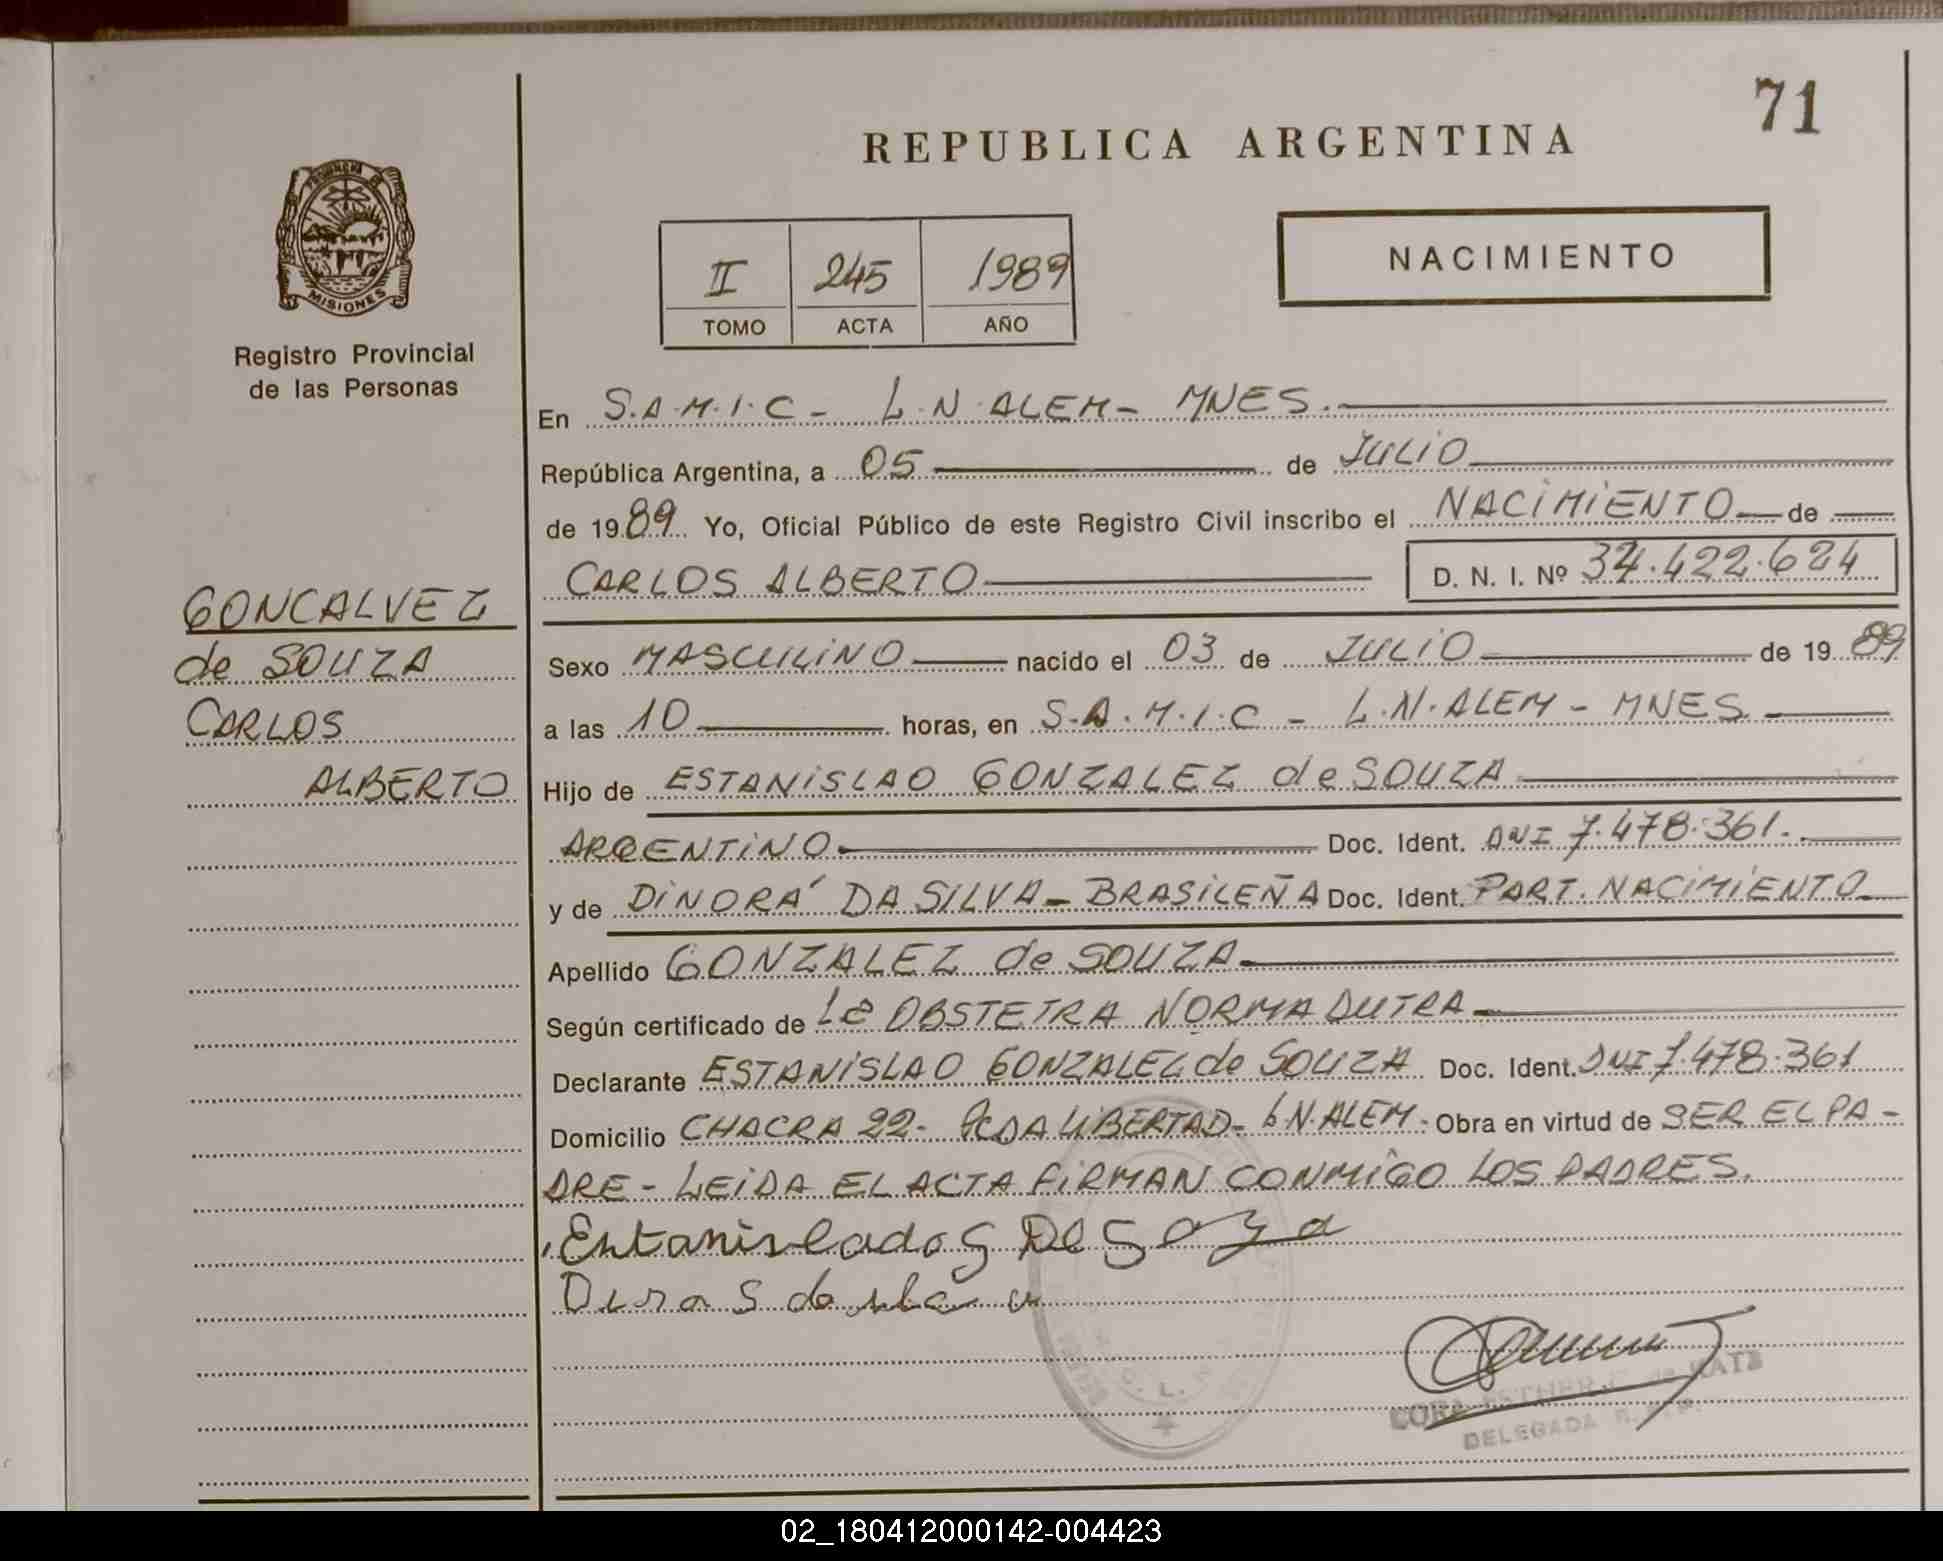 71
REPUBLICA ARGENTINA
PROVINCIA DE
MISIONES
Registro Provincial
de las Personas
II 245 1989
TOMO ACTA AÑO
NACIMIENTO
GONCALVEZ
de SOUZA
CARLOS
ALBERTO
En S.A.M.I.C - L.N.ALEM - MNES.
República Argentina, a 05 de JULIO
de 1989 Yo, Oficial Público de este Registro Civil inscribo el NACIMIENTO de
CARLOS ALBERTO D. N. I. Nº 34.422.624
Sexo MASCULINO nacido el 03 de JULIO de 1989
a las 10 horas, en S.A.M.I.C - L.N.ALEM - MNES
Hijo de ESTANISLAO GONZALEZ de SOUZA
ARGENTINO Doc. Ident. DNI 7.478.361.
y de DINORÁ DA SILVA - BRASILEÑA Doc. Ident. PART. NACIMIENTO
Apellido GONZALEZ de SOUZA
Según certificado de OBSTETRA NORMA DUTRA
Declarante ESTANISLAO GONZALEZ de SOUZA Doc. Ident. DNI 7.478.361
Domicilio CHACRA 22 - PCDA LIBERTAD - L.N.ALEM - Obra en virtud de SER EL PA-
DRE - LEIDA EL ACTA FIRMAN CONMIGO LOS PADRES.
DELEGADA
02_180412000142-004423